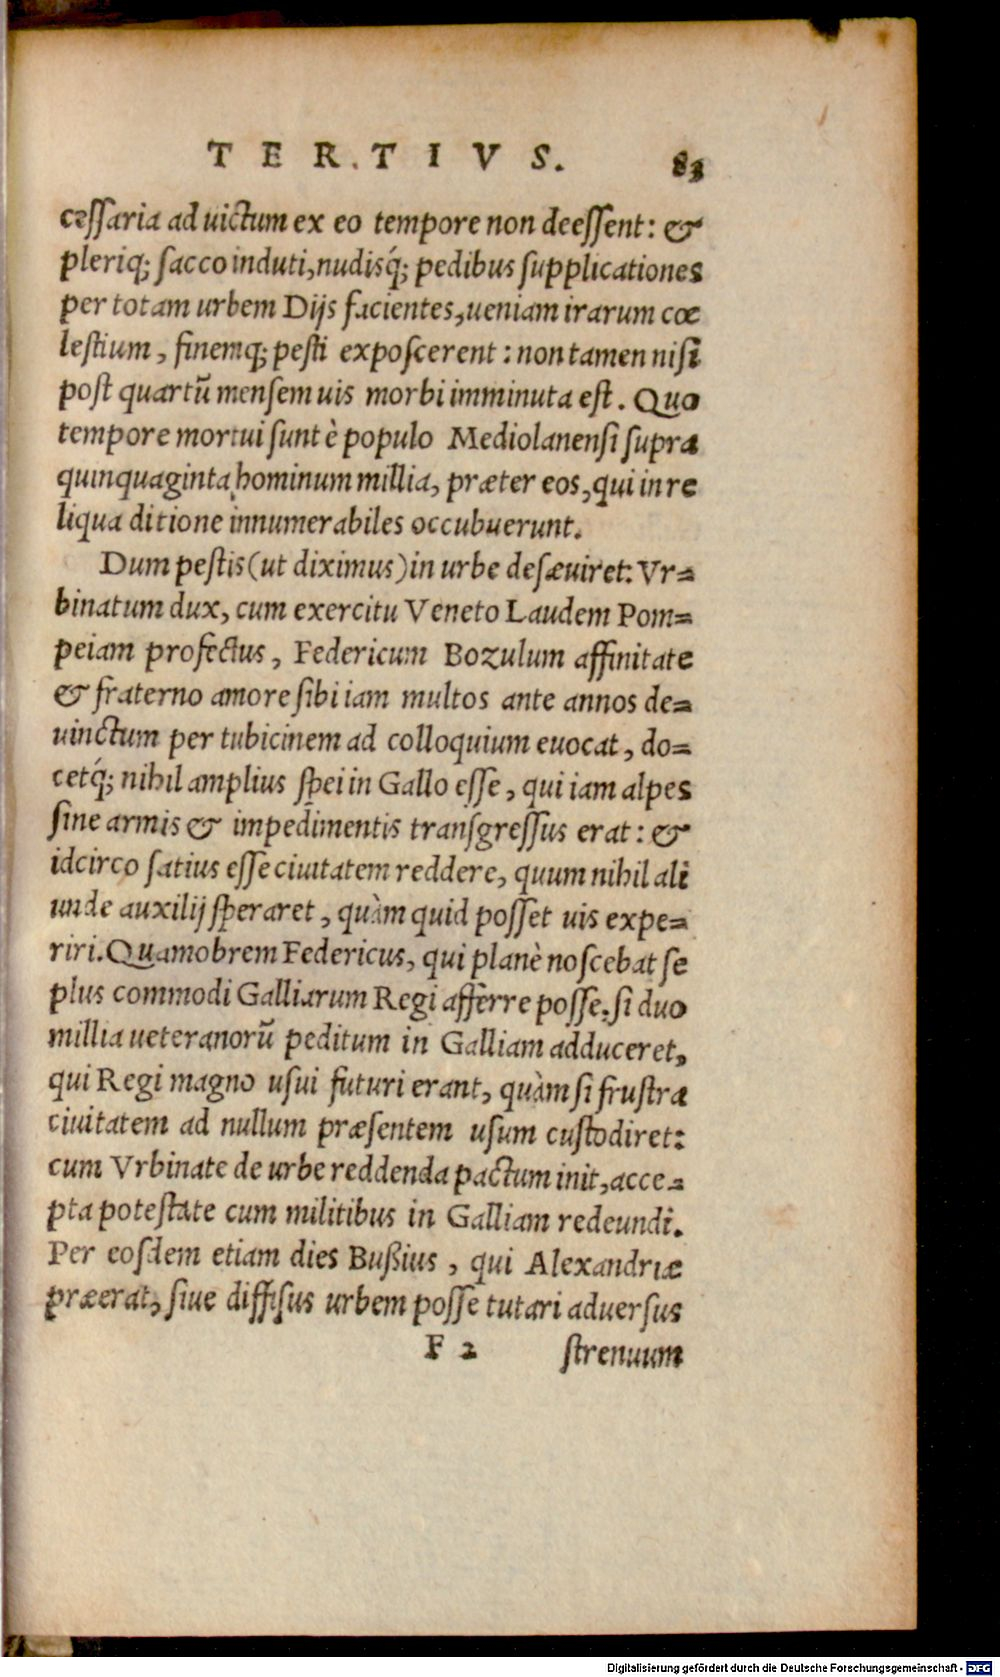 TERTIVS. 83
cessaria ad uictum ex eo tempore non deessent: &
pleriq; sacco induti, nudisq́; pedibus supplicationes
per totam urbem Dijs facientes, ueniam irarum cœ
lestium, finemq; pesti exposcerent: non tamen nisi
post quartū mensem uis morbi imminuta est. Quo
tempore mortui sunt è populo Mediolanensi supra
quinquaginta hominum millia, præter eos, qui in re
liqua ditione innumerabiles occubuerunt.
Dum pestis (ut diximus) in urbe desæuiret: Vr=
binatum dux, cum exercitu Veneto Laudem Pom=
peiam profectus, Federicum Bozulum affinitate
& fraterno amore sibi iam multos ante annos de=
uinctum per tubicinem ad colloquium euocat, do=
cetq́; nihil amplius spei in Gallo esse, qui iam alpes
sine armis & impedimentis transgressus erat: &
idcirco satius esse ciuitatem reddere, quum nihil ali
unde auxilij speraret, quàm quid posset uis expe=
riri. Quamobrem Federicus, qui planè noscebat se
plus commodi Galliarum Regi afferre posse, si duo
millia ueteranorū peditum in Galliam adduceret,
qui Regi magno usui futuri erant, quàm si frustra
ciuitatem ad nullum præsentem usum custodiret:
cum Vrbinate de urbe reddenda pactum init, acce=
pta potestate cum militibus in Galliam redeundi.
Per eosdem etiam dies Bußius, qui Alexandriæ
præerat, siue diffisus urbem posse tutari aduersus
F 2 strenuum
Digitalisierung gefördert durch die Deutsche Forschungsgemeinschaft - DFG